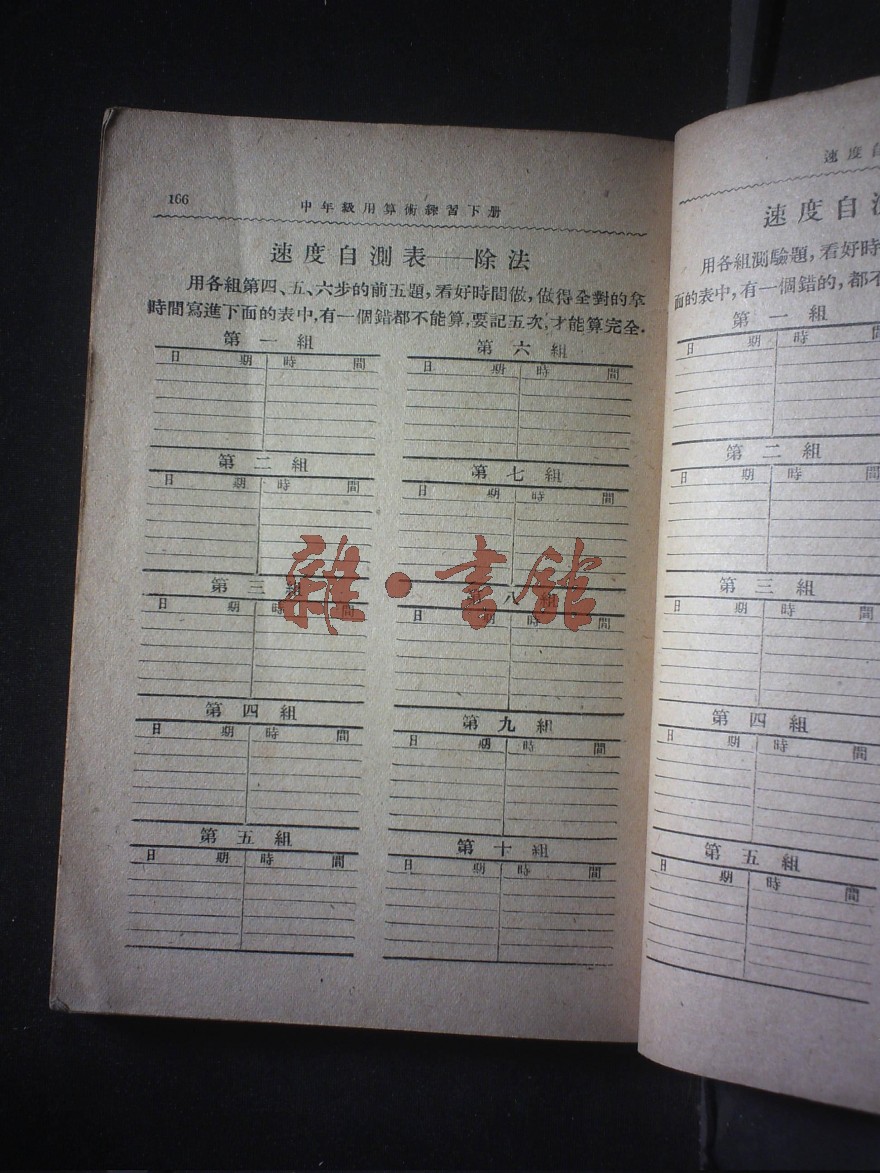 166
中年級用算術練習下册
速度自測表——除法
用各組第四、五、六步的前五題,看好時間做,做得全對的拿
時間寫進下面的表中,有一個錯都不能算,要記五次,才能算完全.
第一組
日期 時間
第二組
日期 時間
第三組
日期 時間
第四組
日期 時間
第五組
日期 時間
第六組
日期 時間
第七組
日期 時間
八組
日期 時間
第九組
日期 時間
第十組
日期 時間
雜·書館
速度自
速度自
用各組測驗題,看好時
面的表中,有一個錯的,都不
第一組
日期 時間
第二組
日期 時間
第三組
日期 時間
第四組
日期 時間
第五組
日期 時間